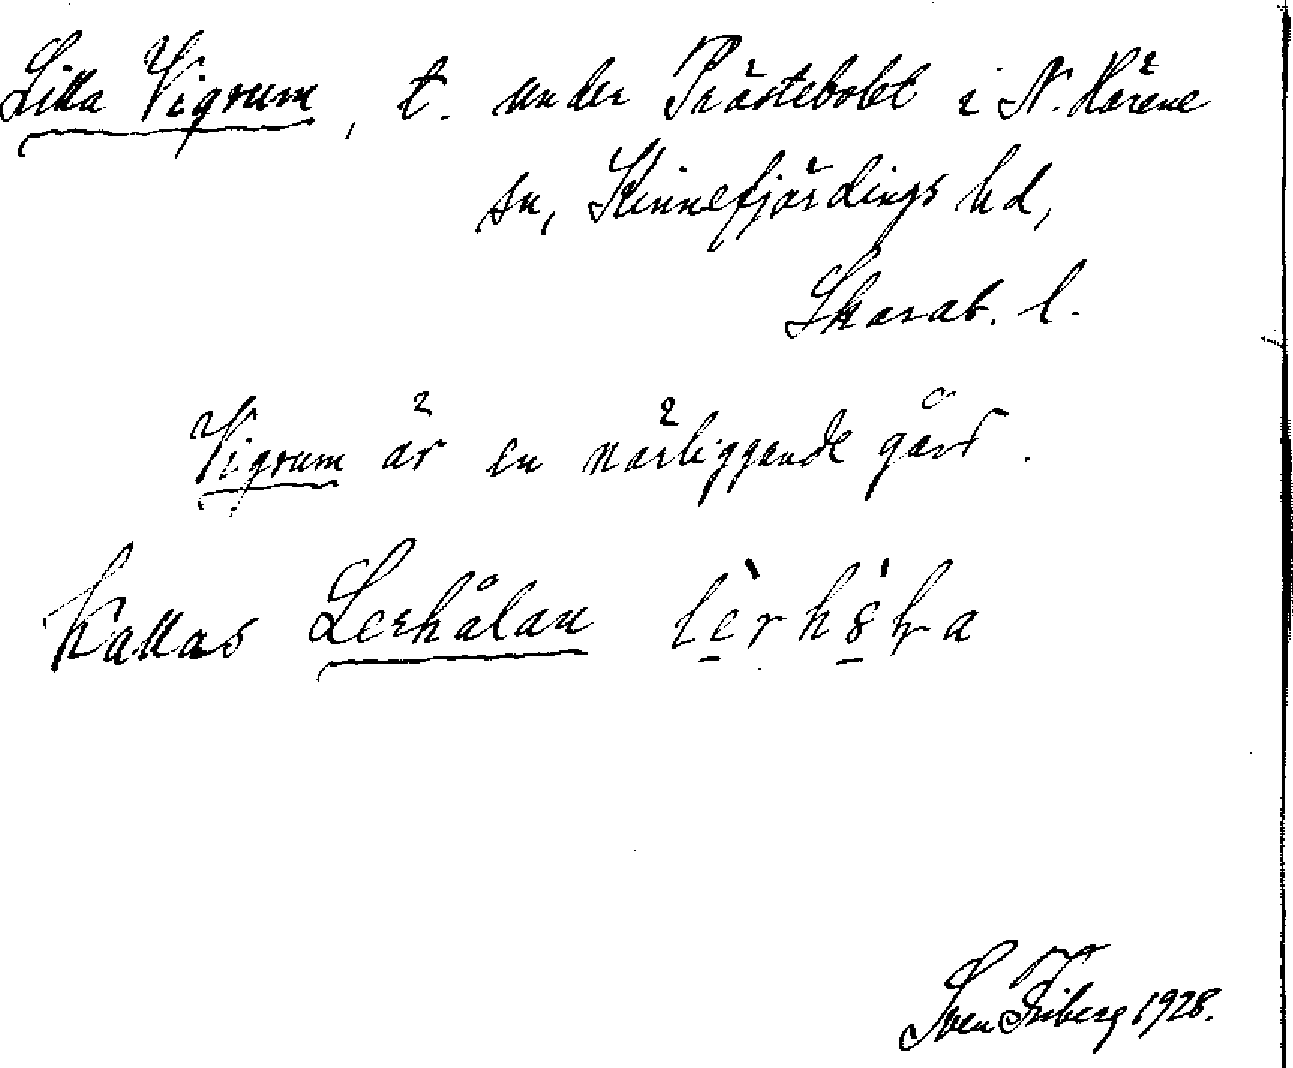 Lilla Vigrum, t. under Prästebolet i N. Härene
sn, Kinnefjärdings hd,
Skarab. l.
Vigrum är en närliggande gård.
Kallas Lerhålan
Sven Friberg 1928.